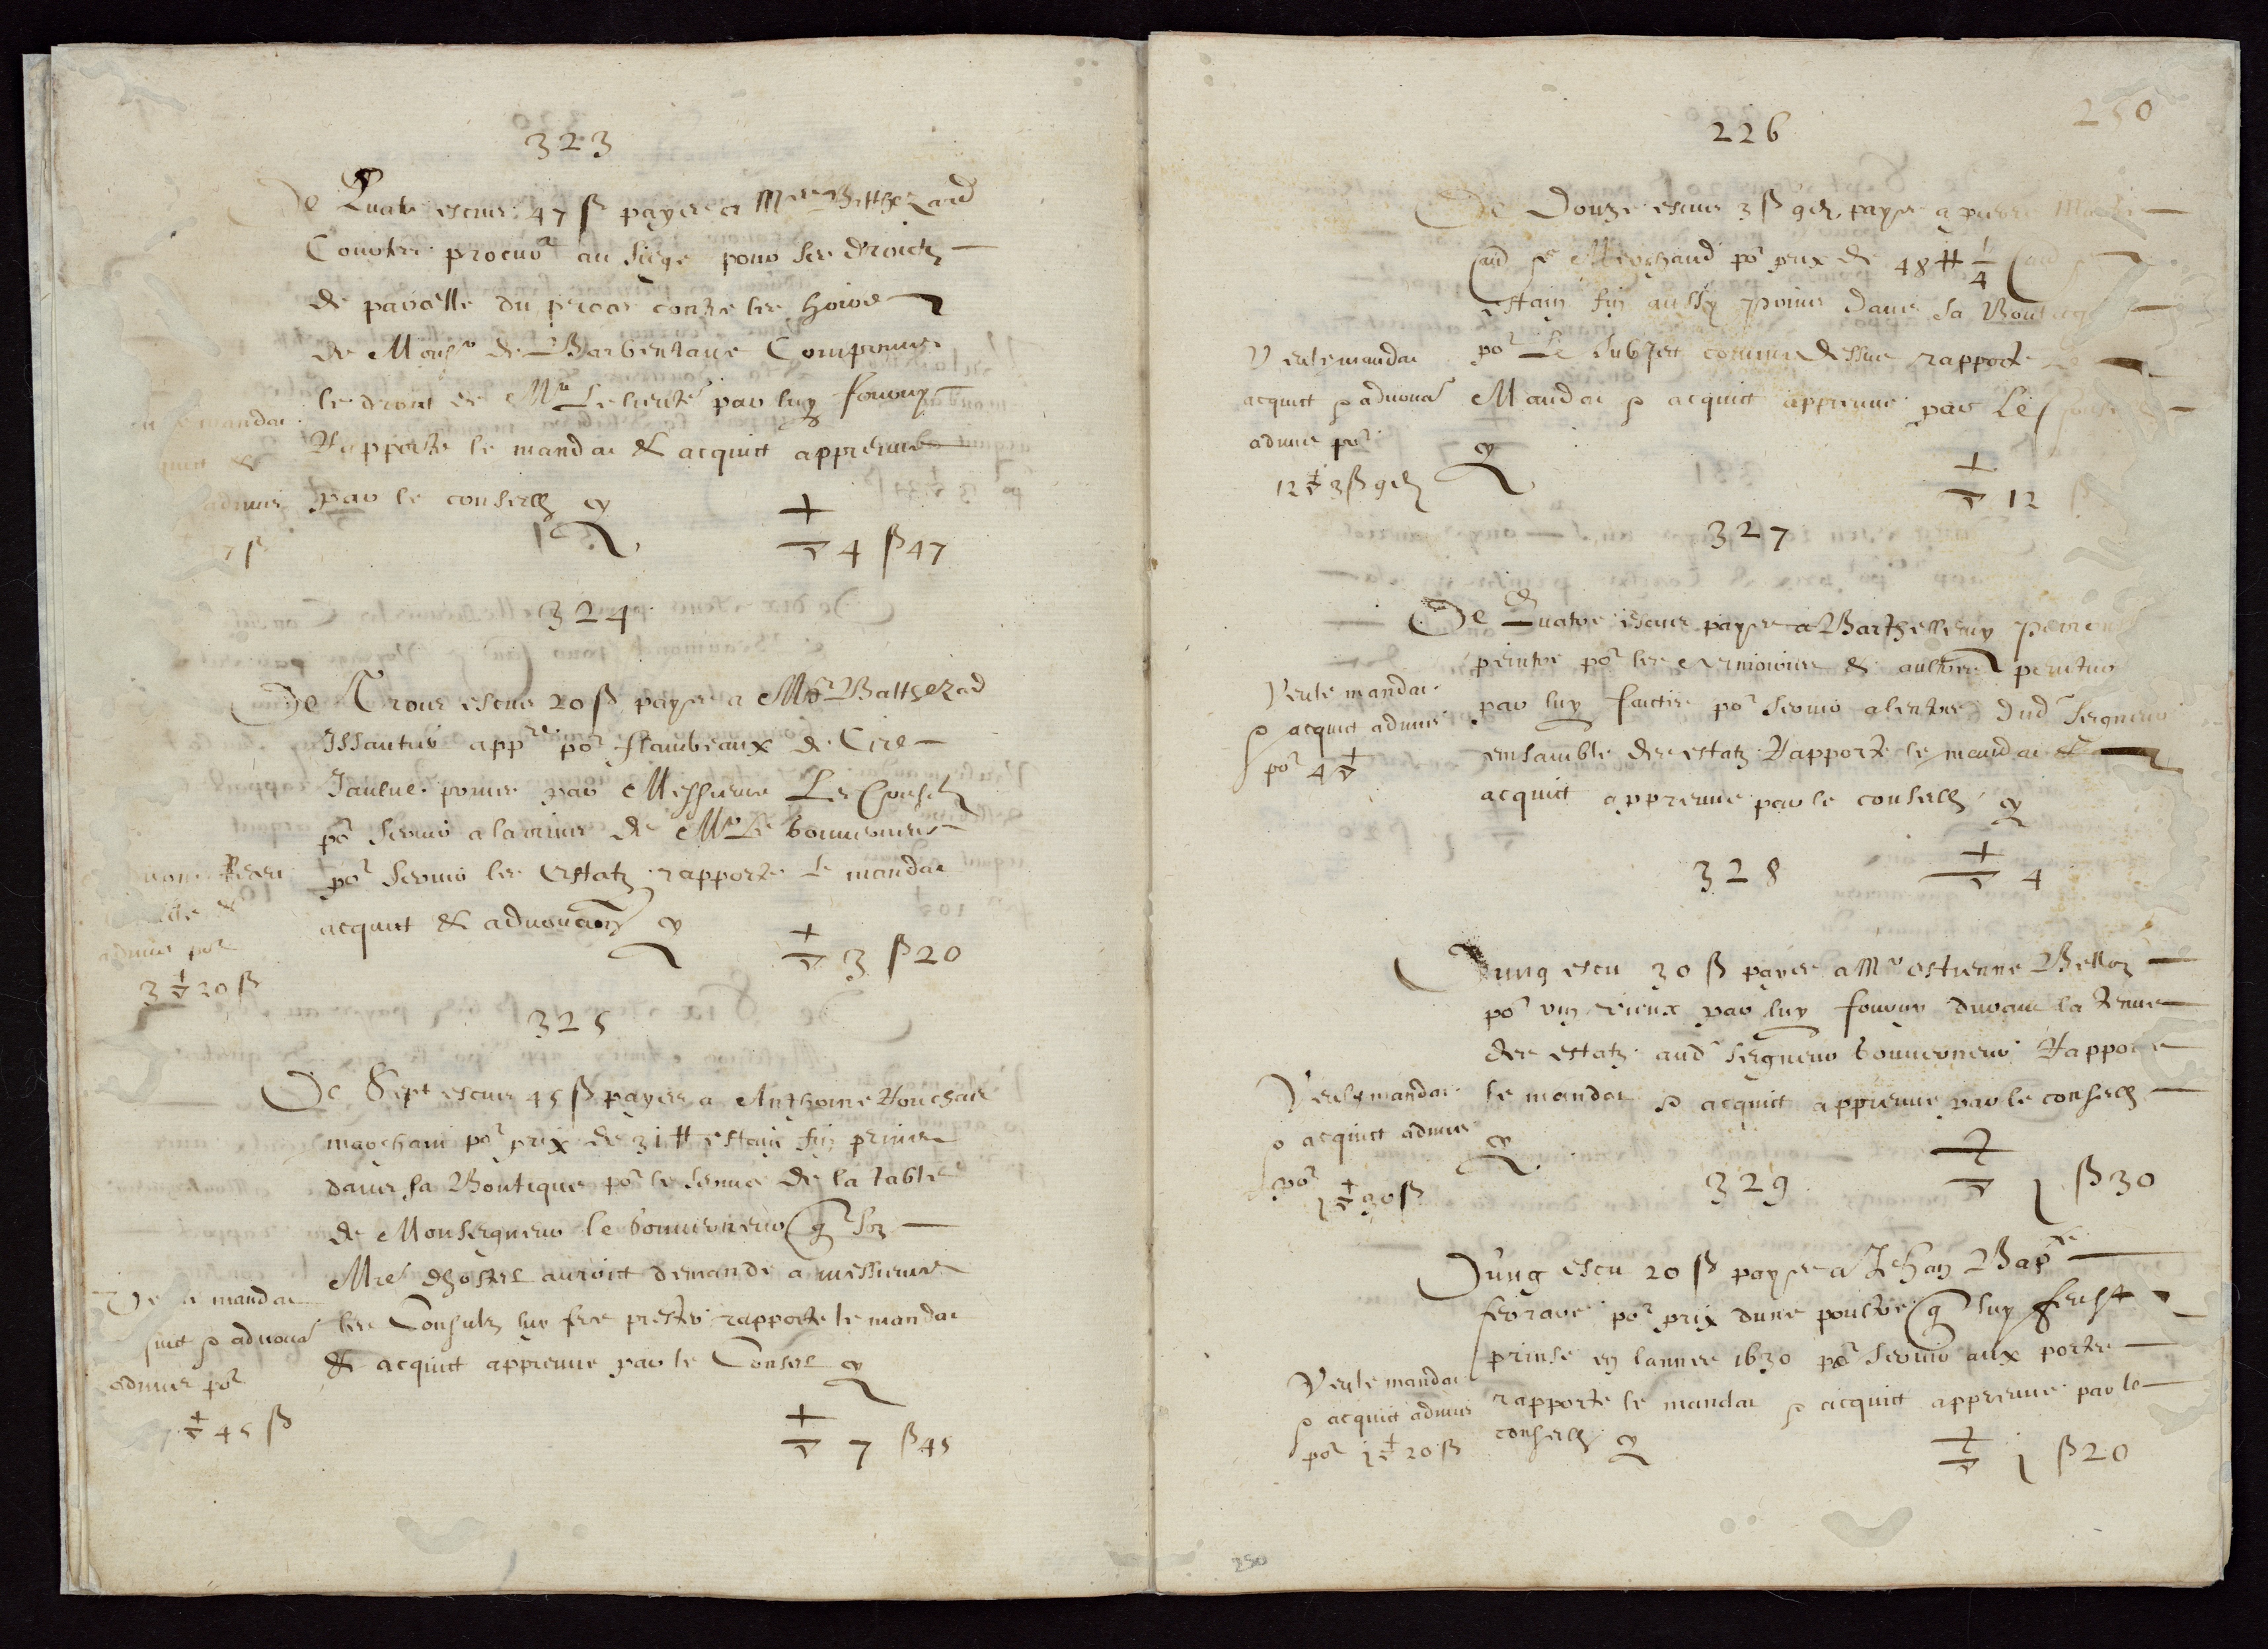 323
De Quatre escus 47 ß payes a Mre Balthezard
procur au siege pour ses droictz
de parcelle du proces contre les hoirs
de Monsr de Barbentane Comprins
le droit de Mr par luy fourny
Rapporte le mandat & acquict appreuve
par le conseilh cy
mandat
admis
7 ß
4 ß 47
324
De Trois escus 20 ß payes a Mr Balthezard
Issautier appre por flambeaux de Cire
Jaulne prins par Messieurs Les Consulz
por servir a la venue de Mr Le Gouverneur
por servir les Estatz rapporte le mandat
acquict & advouaon cy
admis por
3 20 ß
3 ß 20
325
De Sept escus 45 ß payes a Anthoine Rouchas
marchant por prix de 31 # estaing fin prins
dans sa Boutique por le servise de la table
de Monseigneur le Gouverneur q son
Mre dhostel auroict demande a messieurs
les Consulz luy fere prester rapporte le mandat
& acquict appreuve par le Conseil cy
Veu le mandat
acquict & advoua
admis por
7 45 ß
7 ß 45
250
226
De Douze escus 3 ß 9 d payes a pierre
Marchand por prix de 48 # 1/4
estain fin aussy prins dans sa Boutique
por Le Subject comme dessus rapporte le
Mandat & acquict appreuve par Le Conseilh
cy
Veu le mandat
acquict & advoua
admis por
12 3 ß 9 d
12 ß
327
De Quatre escus payes a Barthellemy
peintre por les Armoiries & aultres peintures
par luy faictes por servir a lentree dud Seigneur
emsamble des estatz Rapporte le mandat &
acquict appreuve par le conseilh cy
Veu le mandat
& acquict admis
por 4
4
328
Dung escu 30 ß payes a Mr estienne Bellon
por vin vieux par luy fourny durant la tenue
des estatz aud Seigneur Gouverneur Rapporte
le mandat & acquict appreuve par le conseilh
cy
Veu le mandat
& acquict admis
por
1 30 ß
1 ß 30
329
Dung escu 20 ß payes a Jehan Bapte
ferrare por prix dune poultre q luy feust
prinse en lannee 1630 por servir aux portes
rapporte le mandat & acquict appreuve par le
conseilh cy
Veu le mandat
& acquict admis
por 1 20 ß
1 ß 20
250